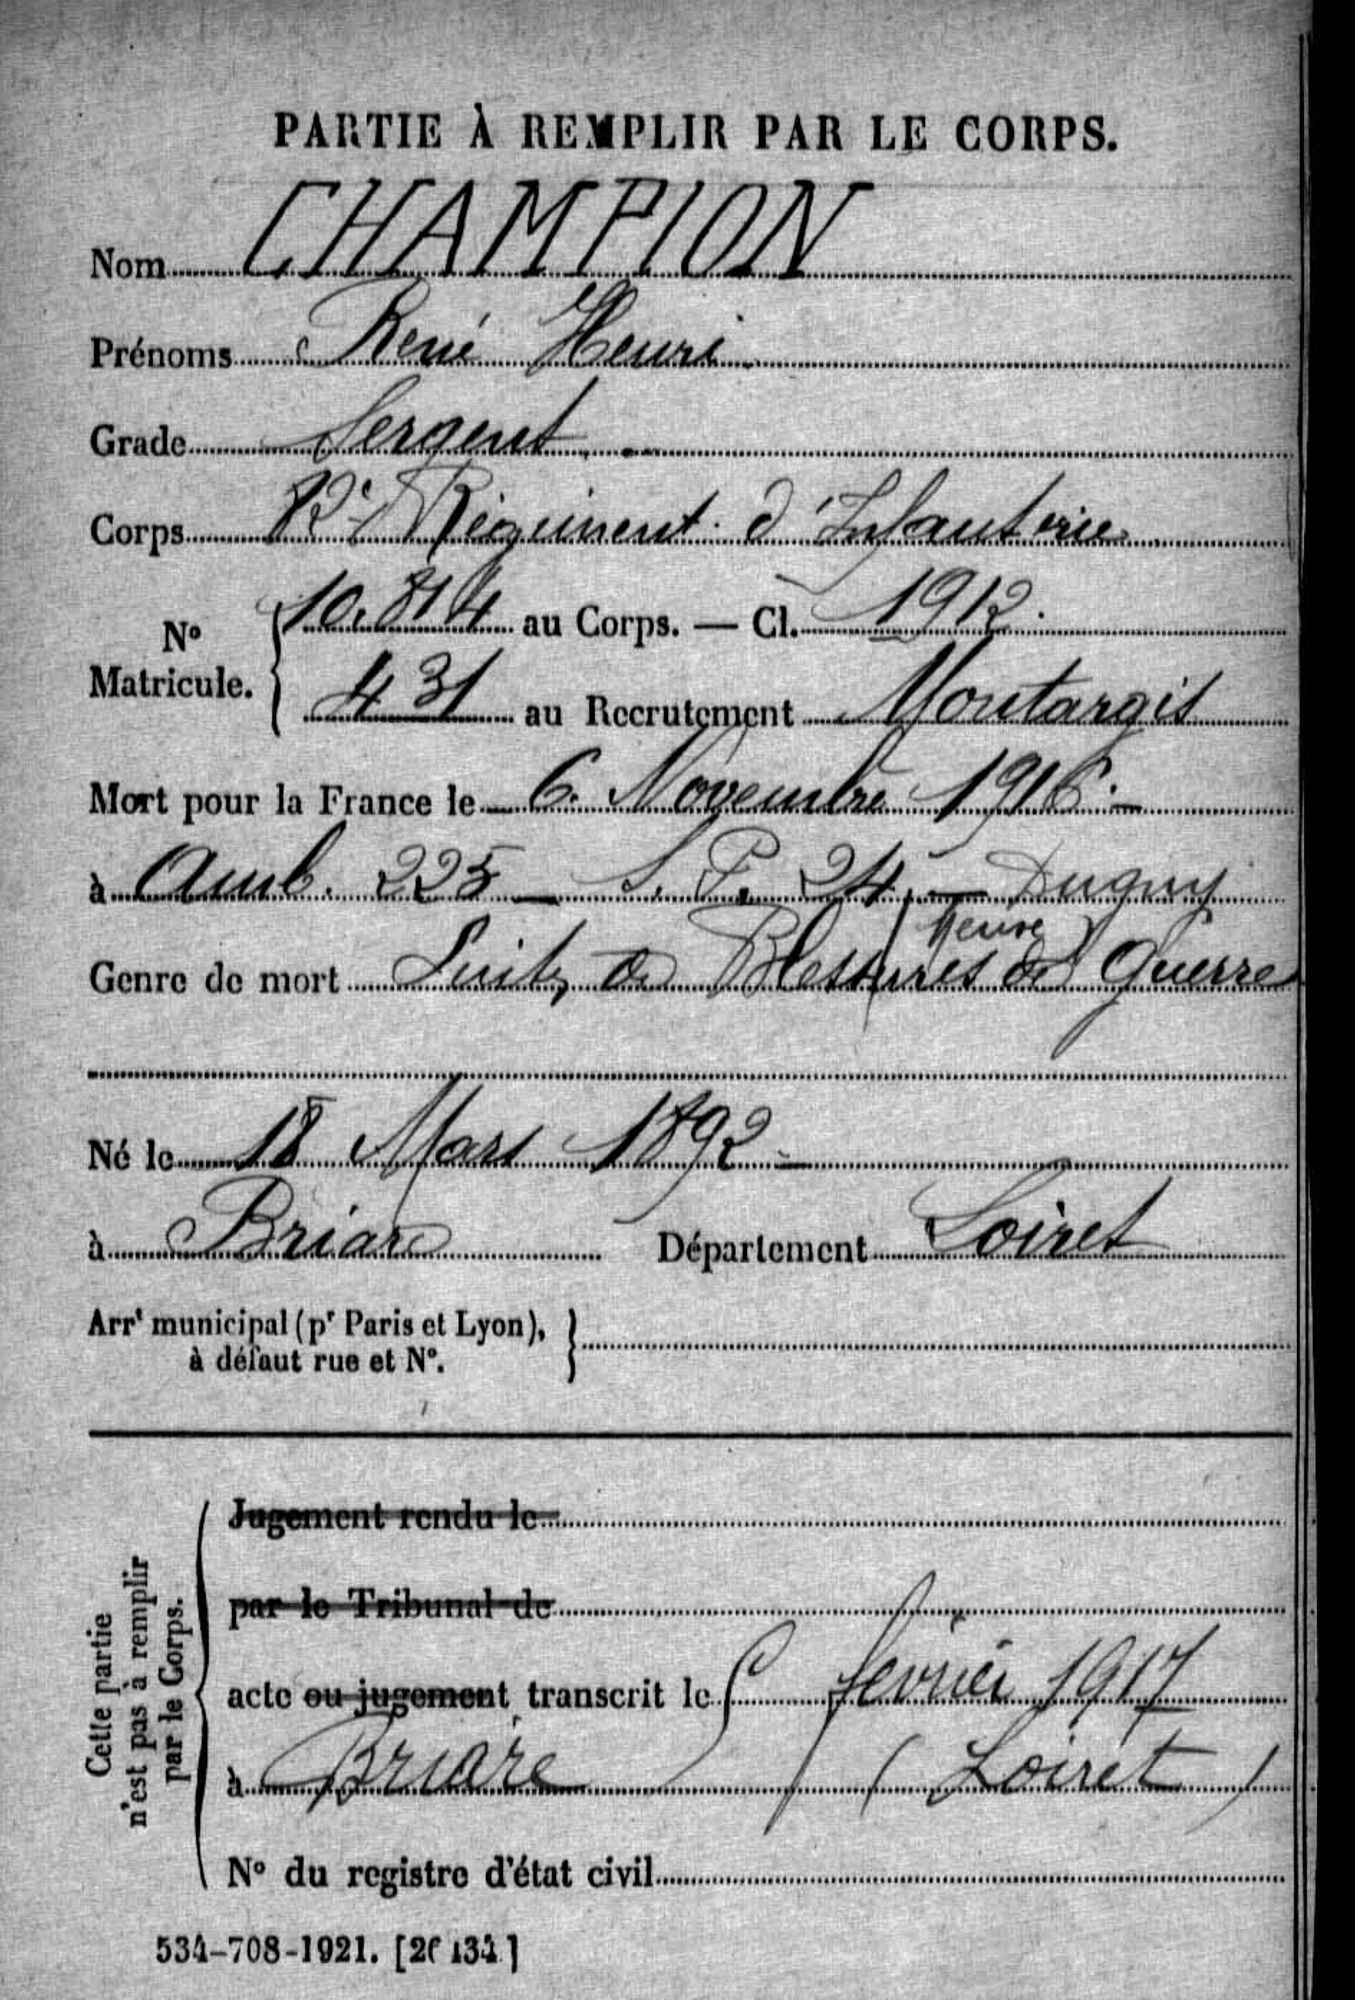 PARTIE À REMPLIR PAR LE CORPS.
Nom CHAMPION
Prénoms René Henri
Grade Sergent
Corps 82e Régiment d'Infanterie
No Matricule. { 10.814 au Corps. — Cl. 1912.
431 au Recrutement Montargis
Mort pour la France le 6. Novembre 1916.
à Amb. 225 — S. P. 24. — Dugny
Meuse
Genre de mort Suites de Blessures de Guerre
Né le 18 Mars 1892
à Briare Département Loiret
Arrt municipal (pr Paris et Lyon), à défaut rue et No. }
Cette partie n'est pas à remplir par le Corps.
Jugement rendu le
par le Tribunal de
acte ou jugement transcrit le février 1917
à Briare (Loiret)
No du registre d'état civil
534-708-1921.